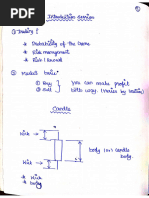 ①
Introduction session
① Trading ?
→ Probability of the Game
→ Risk management
→ Risk / Reward
② Market basic
① Buy
② Sell
you can make profit
both way. (makes by Trading)
Candle
Wick →
body
body (or) candle
Body
→ Wick
→ body